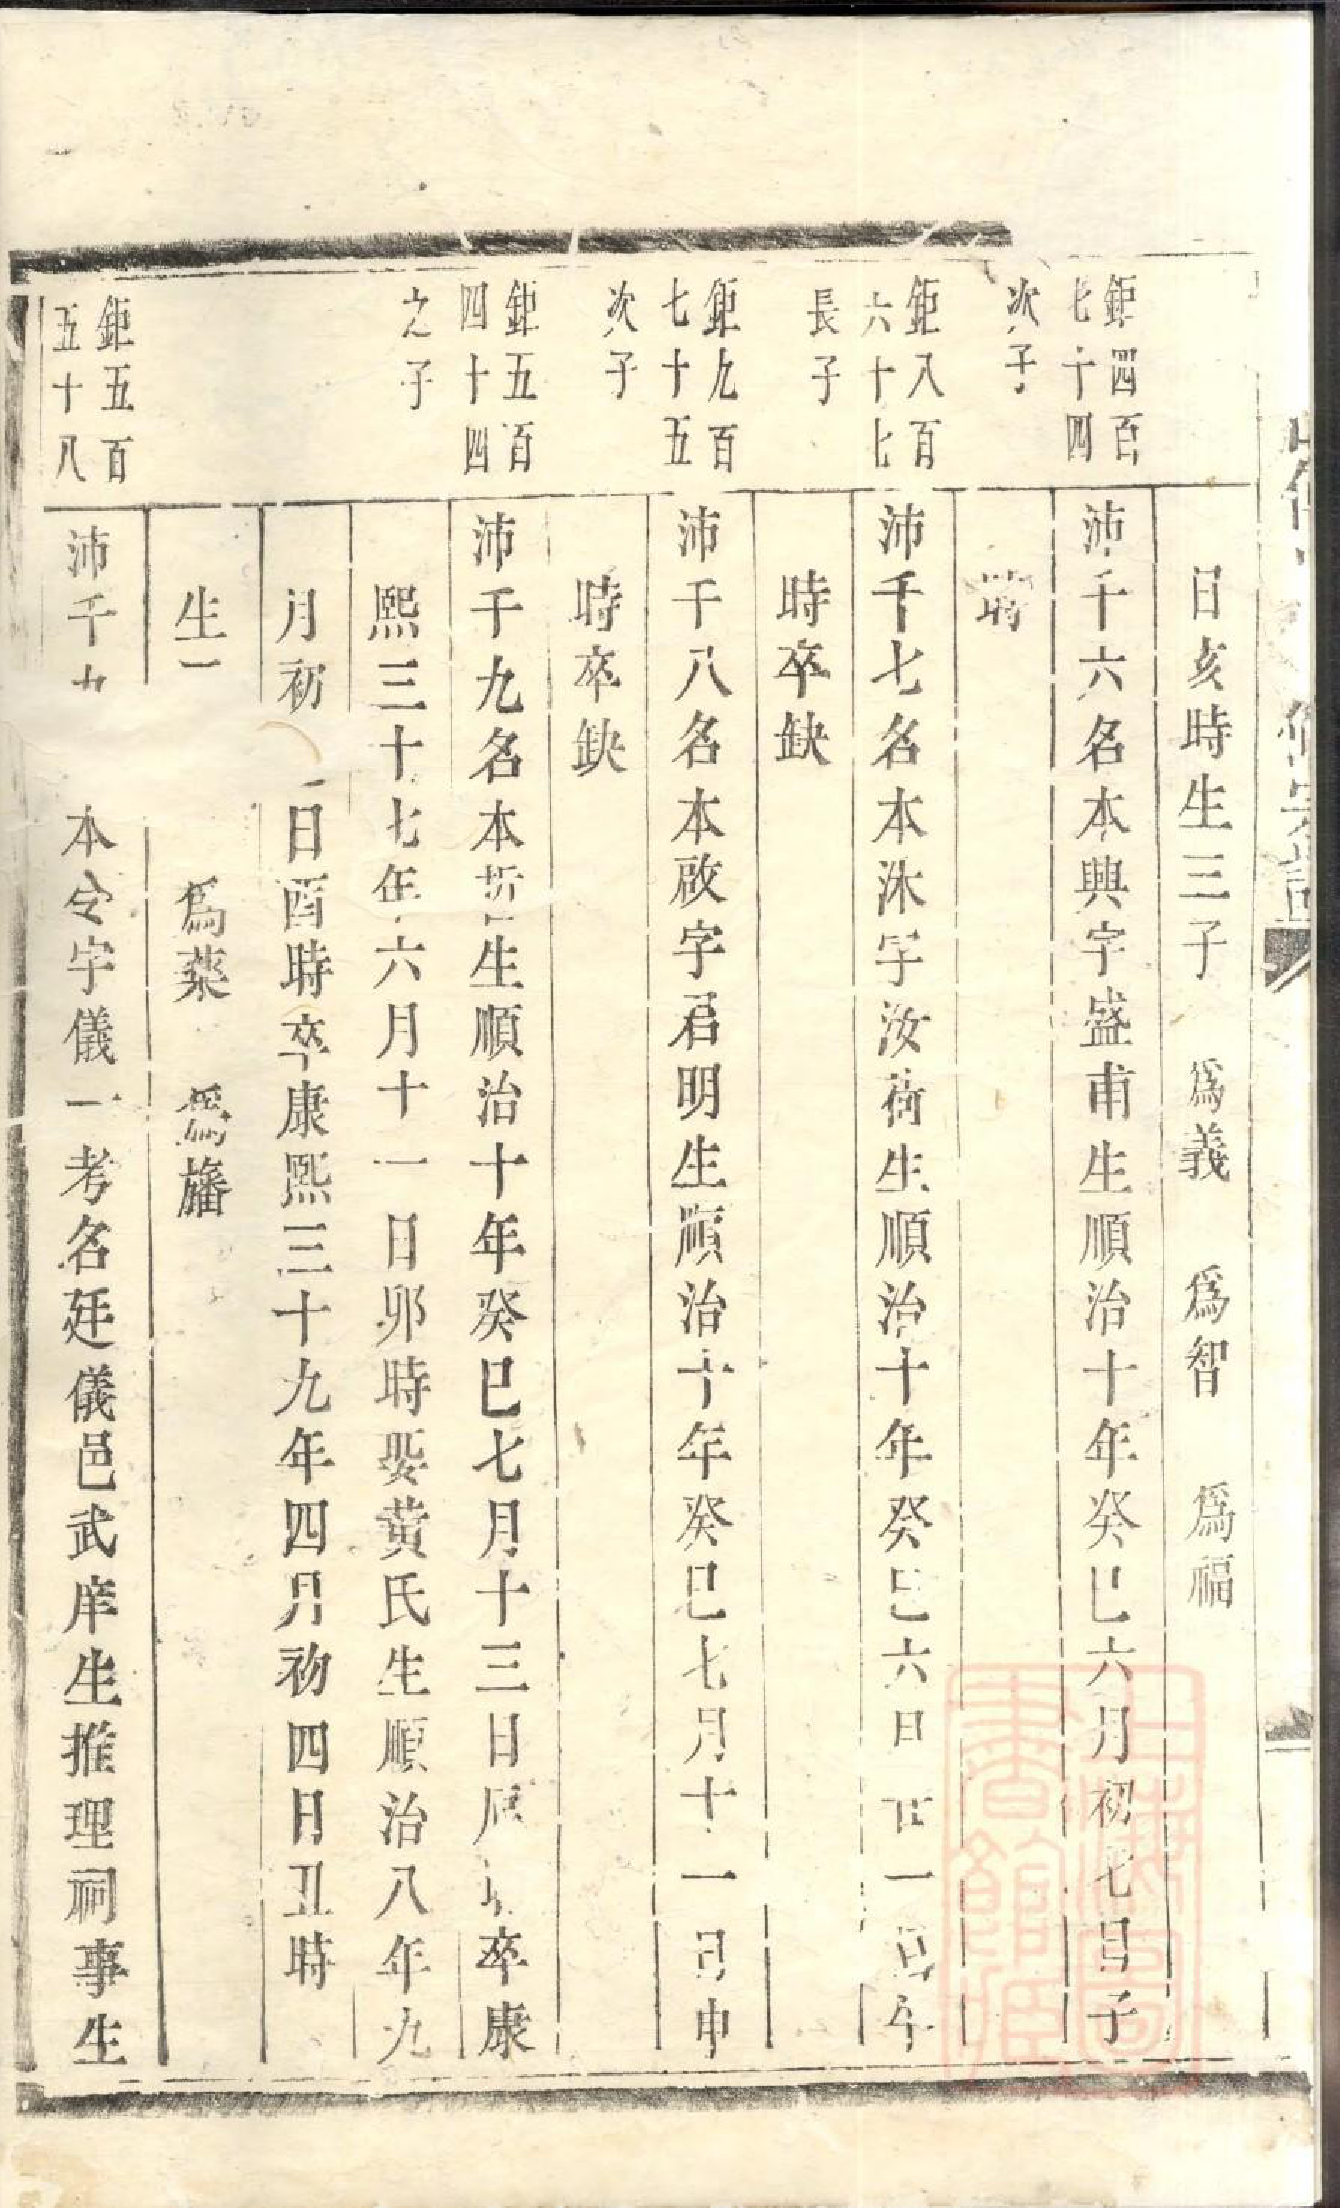 日亥時生三子 爲義 爲智 爲福
鉅四百
七十四
次子
沛千六名本興字盛甫生順治十年癸巳六月初七日子
時
鉅八百
六十七
長子
沛千七名本洙字汝荷生順治十年癸巳六月廿一日午
時卒缺
鉅九百
七十五
次子
沛千八名本啟字君明生順治十年癸巳七月十一日申
時卒缺
鉅五百
四十四
之子
沛千九名本哲生順治十年癸巳七月十三日卒康
熙三十七年六月十一日卯時娶黃氏生順治八年九
月初日酉時卒康熙三十九年四月初四日丑時
生 爲蕖 爲旛
鉅五百
五十八
沛千九本令字儀一考名廷儀邑武庠生推理祠事生
上海圖書館藏